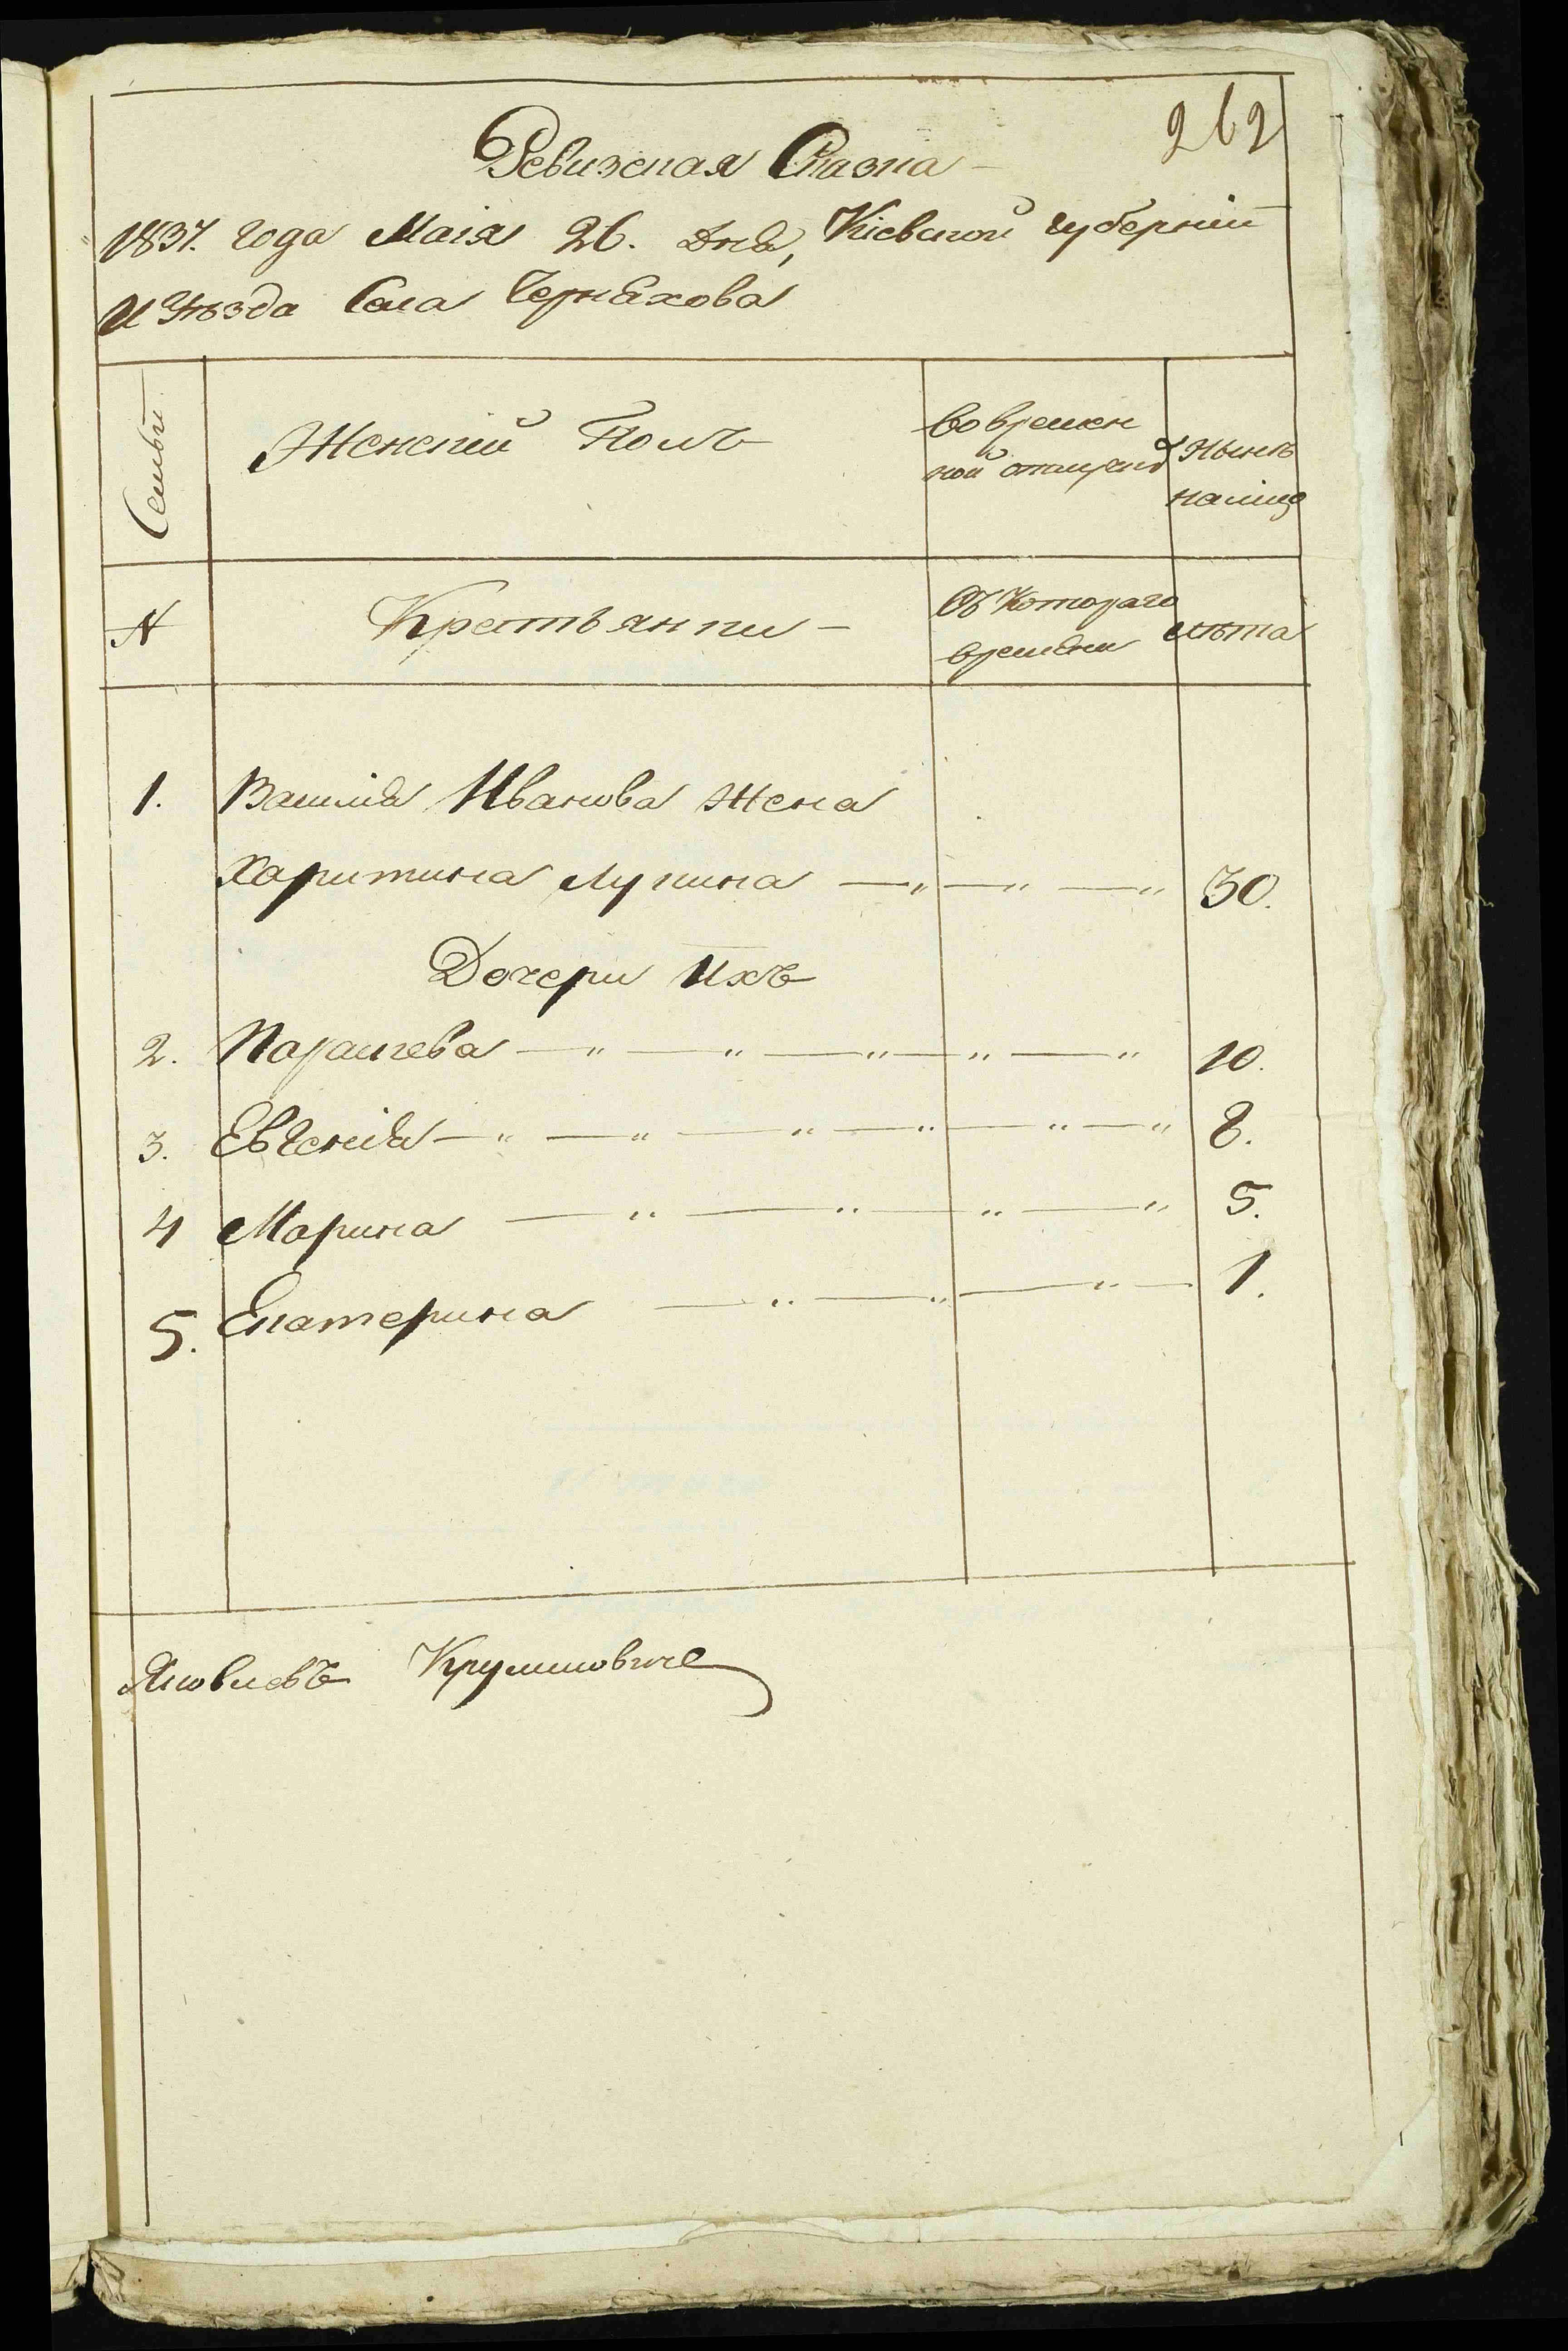 262
Ревизская Сказка
1837. года Маія 26. дня, Кіевской губерніи
И Уѣзда Села Черняхова
Семьи
Женскій Полъ
Во времен
ной отлучкѣ
Нынѣ
на лицо
№
Крестьянки
Съ Котораго
времяни
лѣта
1. Василія Иванова Жена
Харитина Лукина 30.
Дочери Ихъ
2. Параскева 10.
3. Евгенія 8.
4 Марина 5.
5. Екатерина 1.
Яковлевъ